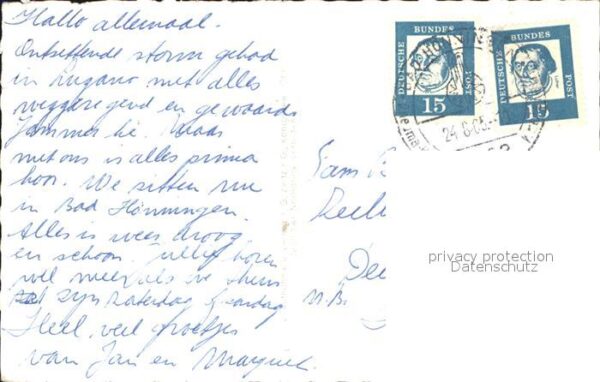 Hallo allemaal.
Ontzettende storm gehad
in Lugano met alles
weggeregend en gewaaid
Jammer hè. Maar
met ons is alles prima
hoor. We zitten nu
in Bad Hönningen.
Alles is weer droog
en schoon. Jullie horen
wel meer als we thuis
zijn zaterdag
Heel veel groetjes
van Jan en
Fam
N.B.
DEUTSCHE BUNDES POST
15
DEUTSCHE BUNDES POST
15
privacy protection
Datenschutz